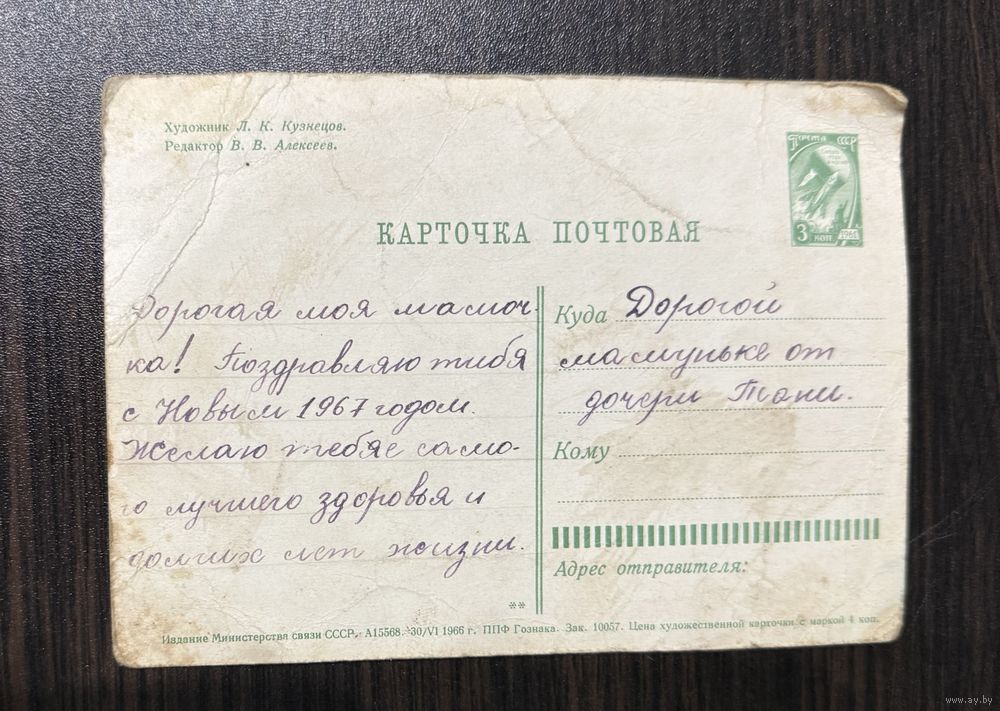 Художник Л. К. Кузнецов.
Редактор В. В. Алексеев.
ПОЧТА СССР
3 КОП
КАРТОЧКА ПОЧТОВАЯ
Дорогая моя мамоч-
ка! Поздравляю тибя
с Новым 1967 годом.
Желаю тебяе само-
го лучшего здоровья и
долгих лет жизни.
Куда Дорогой
мамуньке от
дочери Тани.
Кому
Адрес отправителя:
**
Издание Министерства связи СССР. А15568. 30/VI 1966 г. ППФ Гознака. Зак. 10057. Цена художественной карточки с маркой 4 коп.
www.ay.by